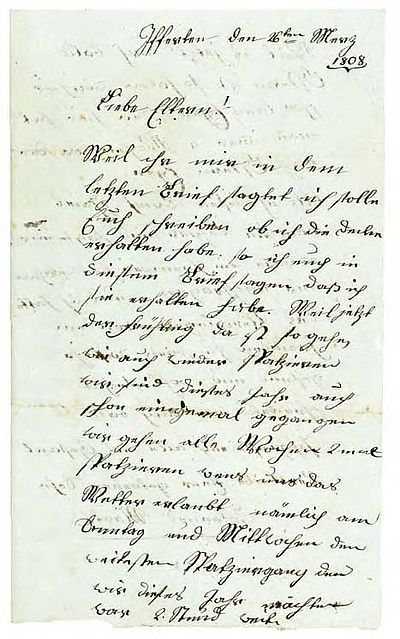 Ifferten den 26ten Merz
1808
Liebe Eltern!
Weil ihr mir in dem
letzten Brief sagtet ich solle
Euch schreiben ob ich die
erhalten habe. so ich euch in
diesem Brief sagen daß ich
sie erhalten habe. Weil jetzt
der Frühling da ist so gehen
wir auch wieder spatzieren
wir sind dieses Jahr auch
schon einigemal gegangen
wir gehen alle Wochen 2 mal
spatzieren wens uns das
Wetter erlaubt nämlich am
Sonntag und Mittwochen den
weitesten Spatziergang den
wir dieses Jahr machten
war 2. Stund weit